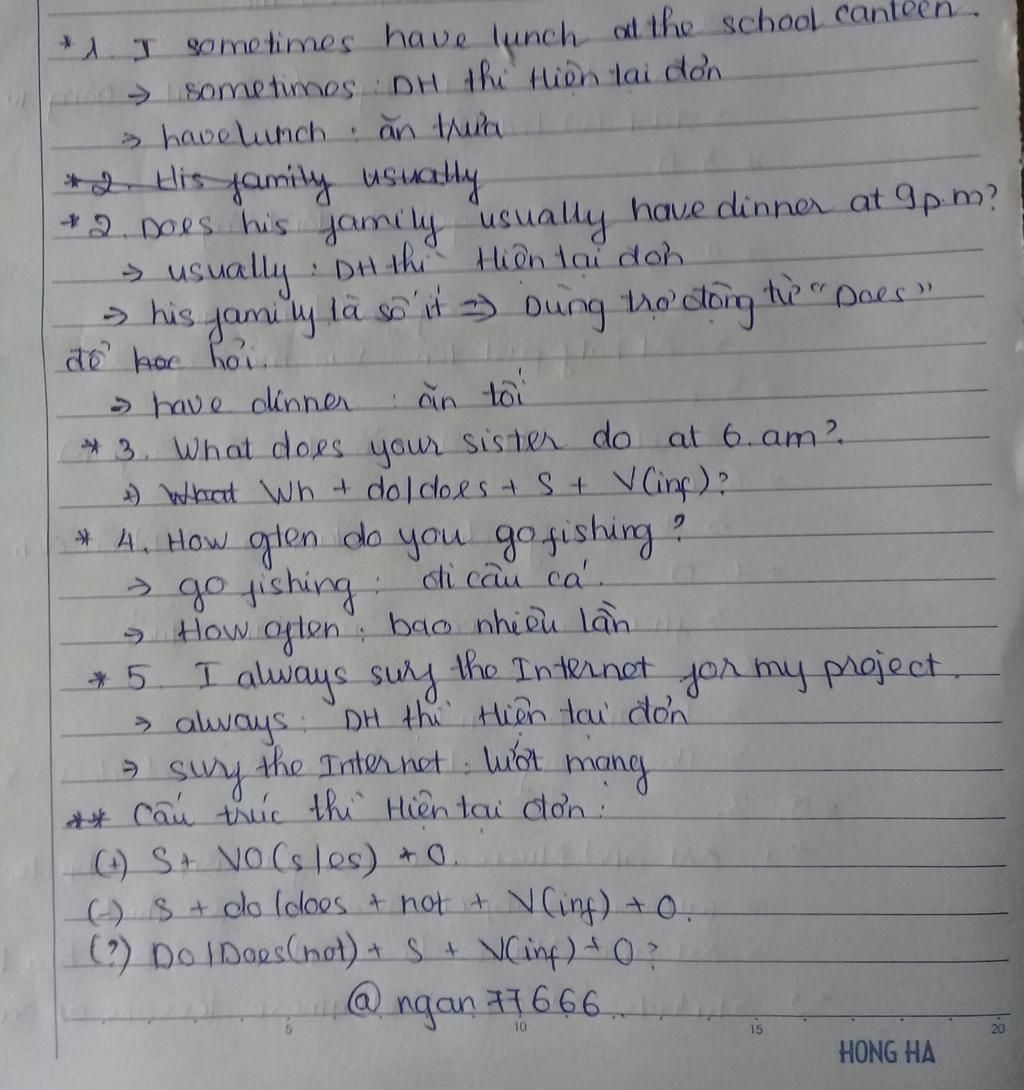 * 1. I sometimes have lunch at the school canteen.
→ sometimes: DH thì Hiện tại đơn
→ have lunch: ăn trưa
* 2. His family usually
* 2. Does his family usually have dinner at 9p.m?
→ usually: DH thì Hiện tại đơn
→ his family là số ít => Dùng trợ động từ "Does"
để hoc hỏi.
→ have dinner: ăn tối
* 3. What does your sister do at 6.am?
+) What Wh + do/does + S + V(inf)?
* 4. How often do you go fishing?
→ go fishing: đi câu cá.
→ How often: bao nhiêu lần
* 5. I always surf the Internet for my project.
→ always: DH thì Hiện tại đơn
→ surf the Internet: lướt mạng
** Cấu trúc thì Hiện tại đơn:
(+) S + V0(s/es) + O.
(-) S + do/does + not + V(inf) + O.
(?) Do/Does(not) + S + V(inf) + O?
@ngan77666
5 10 15 20
HONG HA